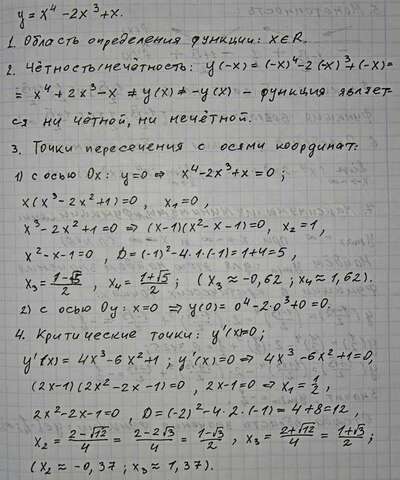 y = x⁴ - 2x³ + x.
1. Область определения функции: x∈R.
2. Чётность/нечётность: y(-x) = (-x)⁴ - 2(-x)³ + (-x) =
= x⁴ + 2x³ - x ≠ y(x) ≠ -y(x) – функция являет-
ся ни чётной, ни нечётной.
3. Точки пересечения с осями координат:
1) с осью Ox: y=0 ⇒ x⁴ - 2x³ + x = 0;
x(x³ - 2x² + 1) = 0, x₁ = 0,
x³ - 2x² + 1 = 0 ⇒ (x-1)(x² - x - 1) = 0, x₂ = 1,
x² - x - 1 = 0, D = (-1)² - 4·1·(-1) = 1+4 = 5,
x₃ = (1-√5)/2, x₄ = (1+√5)/2; (x₃ ≈ -0,62; x₄ ≈ 1,62).
2) с осью Oy: x=0 ⇒ y(0) = 0⁴ - 2·0³ + 0 = 0.
4. Критические точки: y'(x) = 0;
y'(x) = 4x³ - 6x² + 1; y'(x) = 0 ⇒ 4x³ - 6x² + 1 = 0,
(2x-1)(2x² - 2x - 1) = 0, 2x-1 = 0 ⇒ x₁ = 1/2,
2x² - 2x - 1 = 0, D = (-2)² - 4·2·(-1) = 4+8 = 12,
x₂ = (2-√12)/4 = (2-2√3)/4 = (1-√3)/2, x₃ = (2+√12)/4 = (1+√3)/2;
(x₂ ≈ -0,37; x₃ ≈ 1,37).